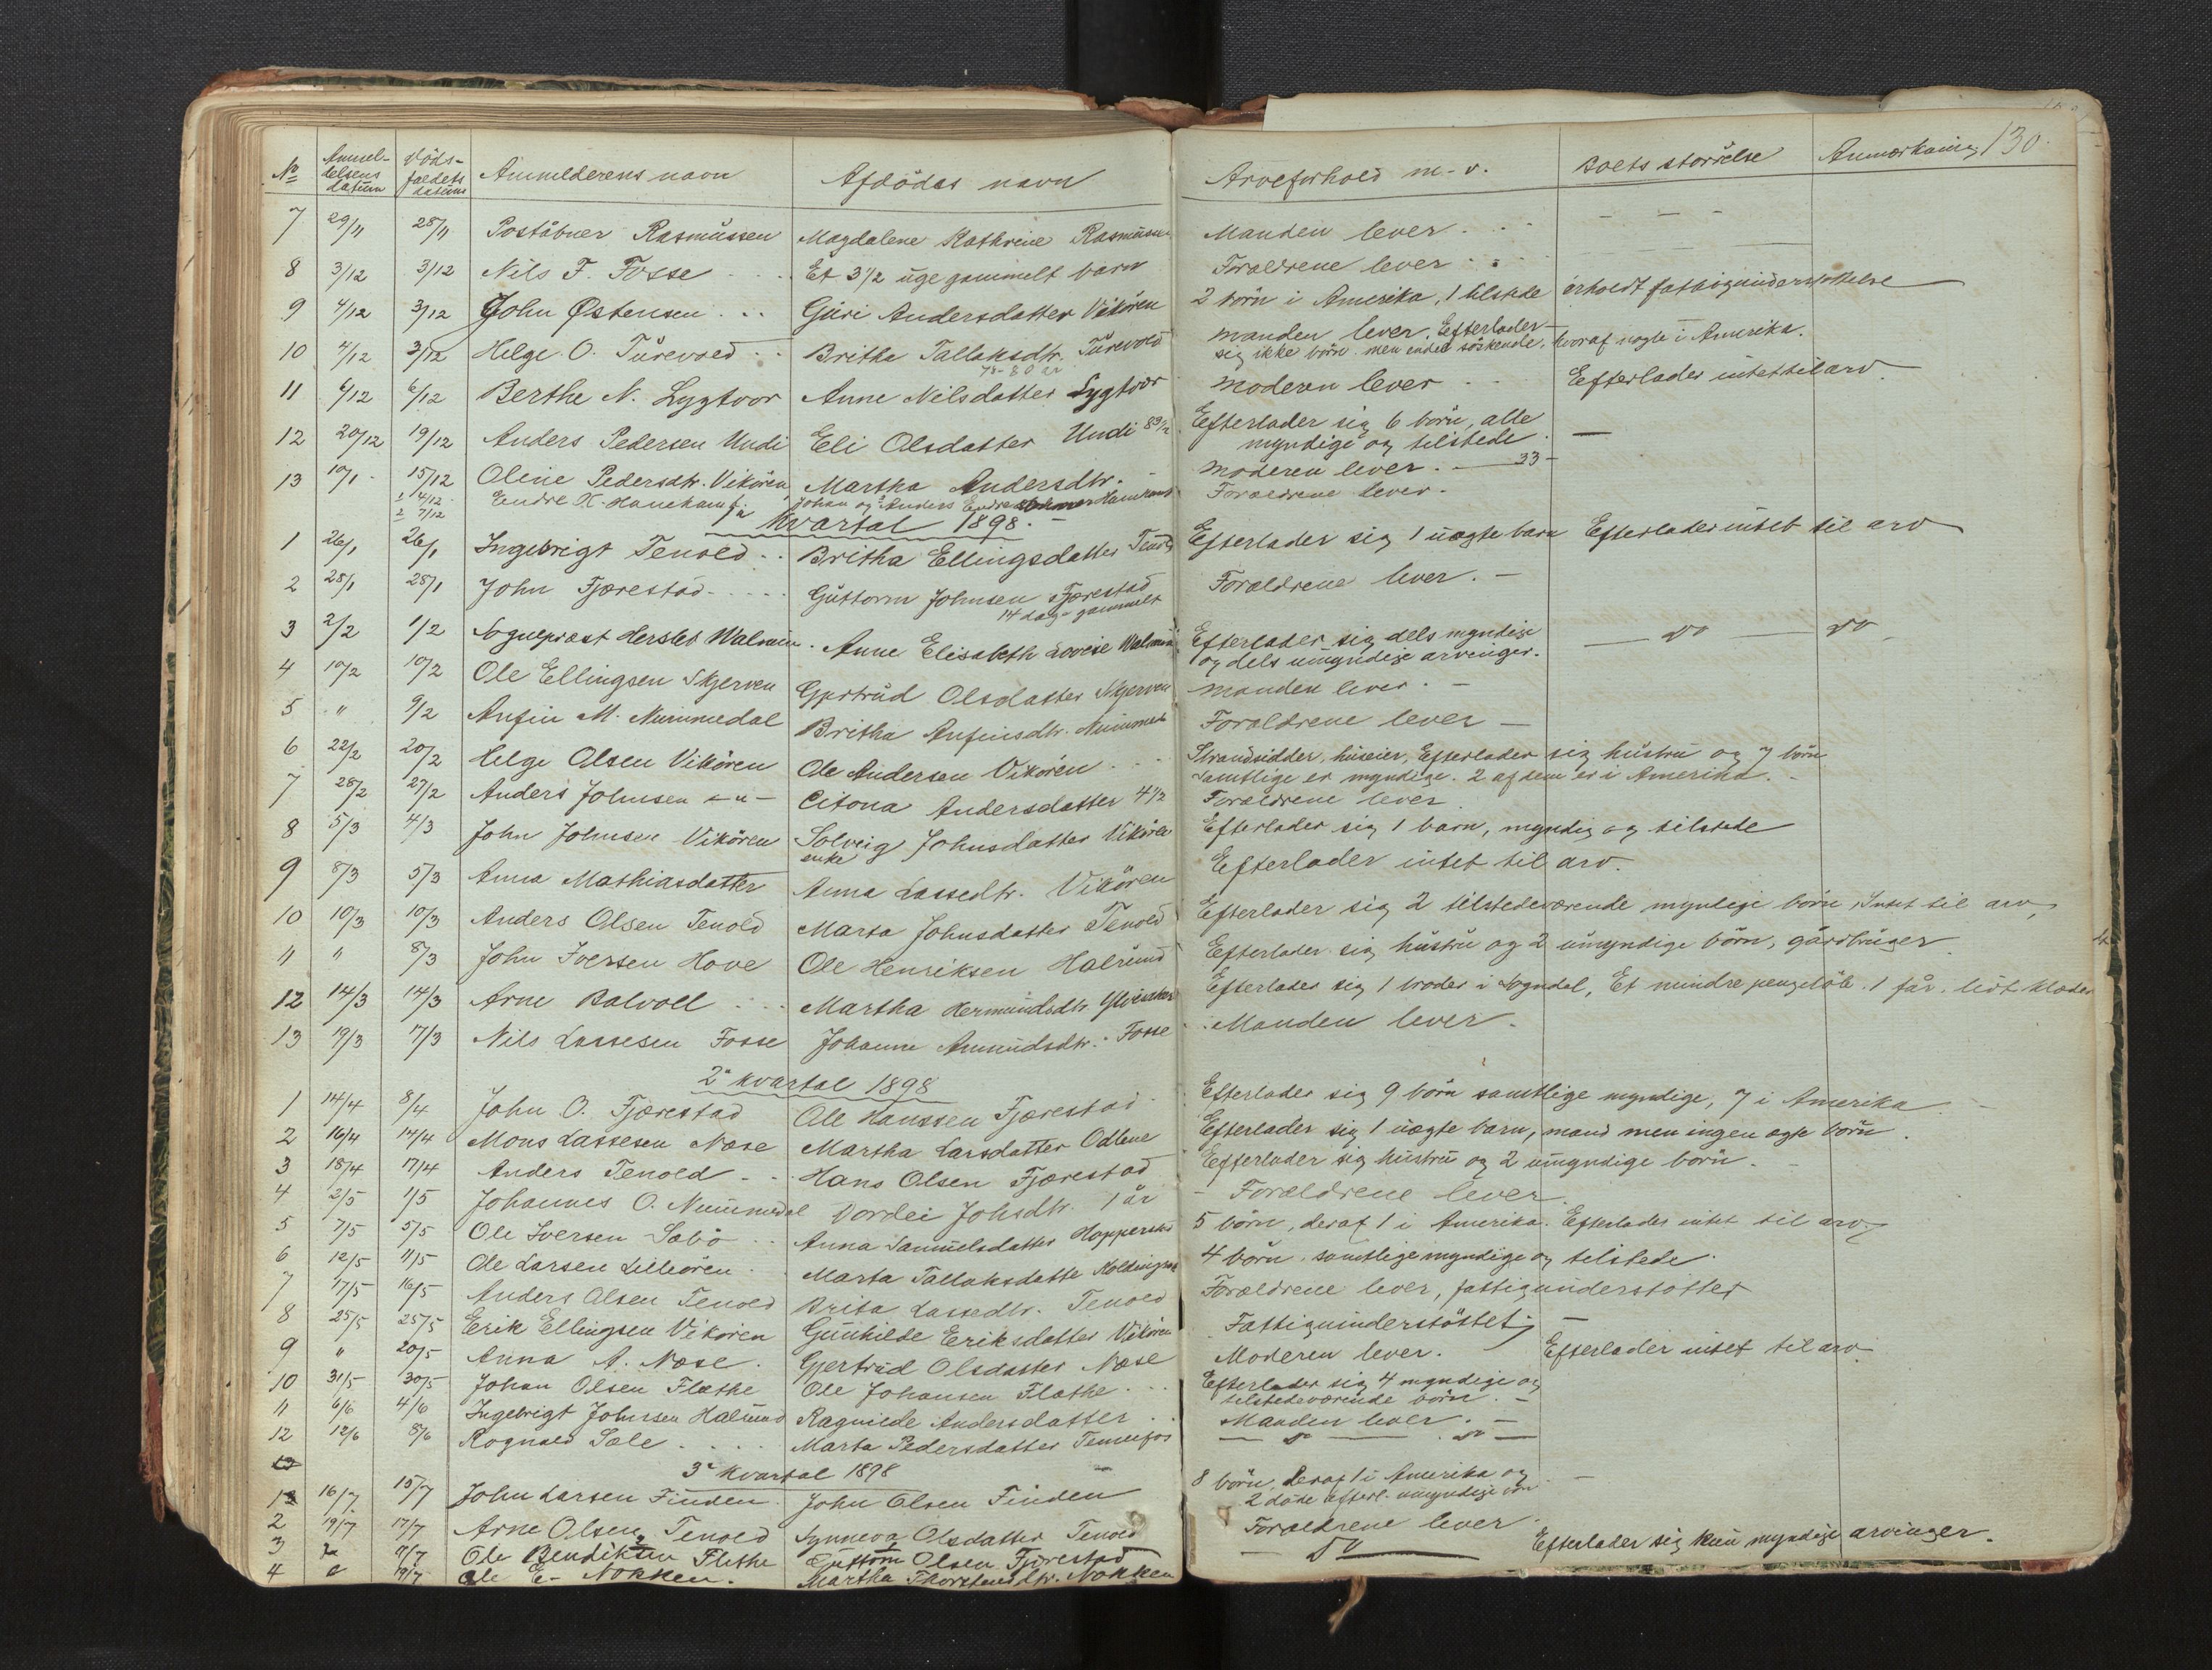 No Anmel-delsens datum Döds-faldets datum Anmelderens navn Afdödes navn Arveforhold m. v. Boets störrelse Anmærkning 130
7 29/11 28/11 Poståbner Rasmussen Magdalene Kathrine Rasmussen Manden lever . . - - -
8 3/12 3/12 Nils F. Fosse Et 3 1/2 uge gammelt barn Forældrene lever
9 4/12 3/12 John Østensen Guri Andersdatter Vikören 2 börn i Amerika, 1 tilstede erholdt fattigunderstøttelse
10 4/12 3/12 Helge O. Turevold Britha Tallaksdtr. Turevold manden lever. Efterlader
78-80 år sig ikke börn men endel söskende, hvoraf nogle i Amerika.
11 6/12 6/12 Berthe N. Lygtvor Anne Nilsdatter Lygtvor Moderen lever Efterlader intet til arv.
12 20/12 19/12 Anders Pedersen Undi Eli Olsdatter Undi 83 1/2 Efterlader sig 6 börn, alle
myndige og tilstede. —
13 10/1 15/12 Oline Pedersdtr. Vikören Martha Andersdtr. Moderen lever. — 33 -
1 4/12 2 7/12 Endre H. Hanekam Johan og Anders Forældrene lever.
1a Kvartal 1898. —
1 26/1 26/1 Ingebrigt Tenold Britha Ellingsdatter Tenold Efterlader sig 1 uægte barn Efterlader intet til arv
2 28/1 28/1 John Fjærestad Guttorm Johnsen Fjærestad Forældrene lever. -
14 dage gammelt
3 2/2 1/2 Sogneprest Hersleb Walnum Anne Elisabeth Lovise Walnum Efterlader sig dels myndige — do — do
og dels umyndige arvinger.
4 10/2 10/2 Ole Ellingsen Skjerven Gjertrud Olsdatter Skjerven Manden lever. -
5 " 9/2 Anfin M. Nummedal Britha Anfinsdtr. Nummed Forældrene lever -
6 22/2 20/2 Helge Olsen Vikören Ole Andersen Vikören Strandsidder, huseier, Efterlader sig hustru og 7 börn
Samtlige er myndige. 2 af dem er i Amerika.
7 28/2 27/2 Anders Johnsen - " - Citona Andersdatter 4 1/2 Forældrene lever.
8 5/3 4/3 John Johnsen Vikören Solveig Johnsdatter Vikören Efterlader sig 1 barn, myndig og tilstede
enke
9 8/3 5/3 Anna Mathiasdatter Anna Lassedtr. Vikören Efterlader intet til arv.
10 10/3 10/3 Anders Olsen Tenold Marta Johnsdatter Tenold Efterlader sig 2 tilstedeværende myndige börn, Intet til arv,
11 " 8/3 John Iversen Hove Ole Henriksen Halsund Efterlader sig hustru og 2 umyndige börn, gårdbruger
12 14/3 14/3 Arne Bolvoll Martha Hermundsdtr. Efterlader sig 1 broder i Sogndal, Et mindre pengelöb. 1 får. lidt klæder
13 19/3 17/3 Nils Lassesen Fosse Johanne Amundsdtr. Fosse Manden lever.
2a kvartal 1898
1 14/4 8/4 John O. Fjærestad Ole Hanssen Fjærestad Efterlader sig 9 börn samtlige myndige, 7 i Amerika.
2 16/4 14/4 Mons Lassesen Næse Martha Larsdatter Efterlader sig 1 uægte barn, mand men ingen ægte börn.
3 18/4 17/4 Anders Tenold Hans Olsen Fjærestad Efterlader sig hustru og 2 umyndige börn.
4 2/5 1/5 Johannes O. Nummedal Johsdtr. 1 år - Forældrene lever.
5 7/5 5/5 Ole Iversen Sæbö Anna Samuelsdatter 5 börn, deraf 1 i Amerika. Efterlader intet til arv.
6 12/5 11/5 Ole Larsen Lilleören Marta Tallaksdatte 4 börn. samtlige myndige og tilstede.
7 17/5 16/5 Anders Olsen Tenold Brita Lassedtr. Tenold Forældrene lever, fattigunderstöttet
8 25/5 25/5 Erik Ellingsen Vikören Gunhilde Eriksdatter Vikören Fattigunderstöttet, —
9 " 20/5 Anna A. Næse. Gjertrud Olsdatter Næse Moderen lever. Efterlader intet til arv.
10 31/5 30/5 Johan Olsen Flæthe Ole Johansen Flæthe Efterlader sig 4 myndige og
tilstedeværende börn. -
11 6/6 4/6 Ingebrigt Johnsen Halsund Ragnilde Andersdatter Manden lever. -
12 12/6 8/6 Rognald Sæle Marta Pedersdatter — do — do —
13
3a kvartal 1898
1 16/7 15/7 John Larsen Finden. John Olsen Finden 8 börn, deraf 1 i Amerika og —
2 döde efterl. umyndige börn
2 19/7 17/7 Arne Olsen Tenold Synneva Olsdatter Tenold Forældrene lever.
3 9/7 Ole Bendiktsen Flethe Guttorm Olsen Fjærestad do —
4 19/7 Ole E. Nokken. Martha Thorstensdtr. Nokken Efterlader sig kun myndige arvinger.